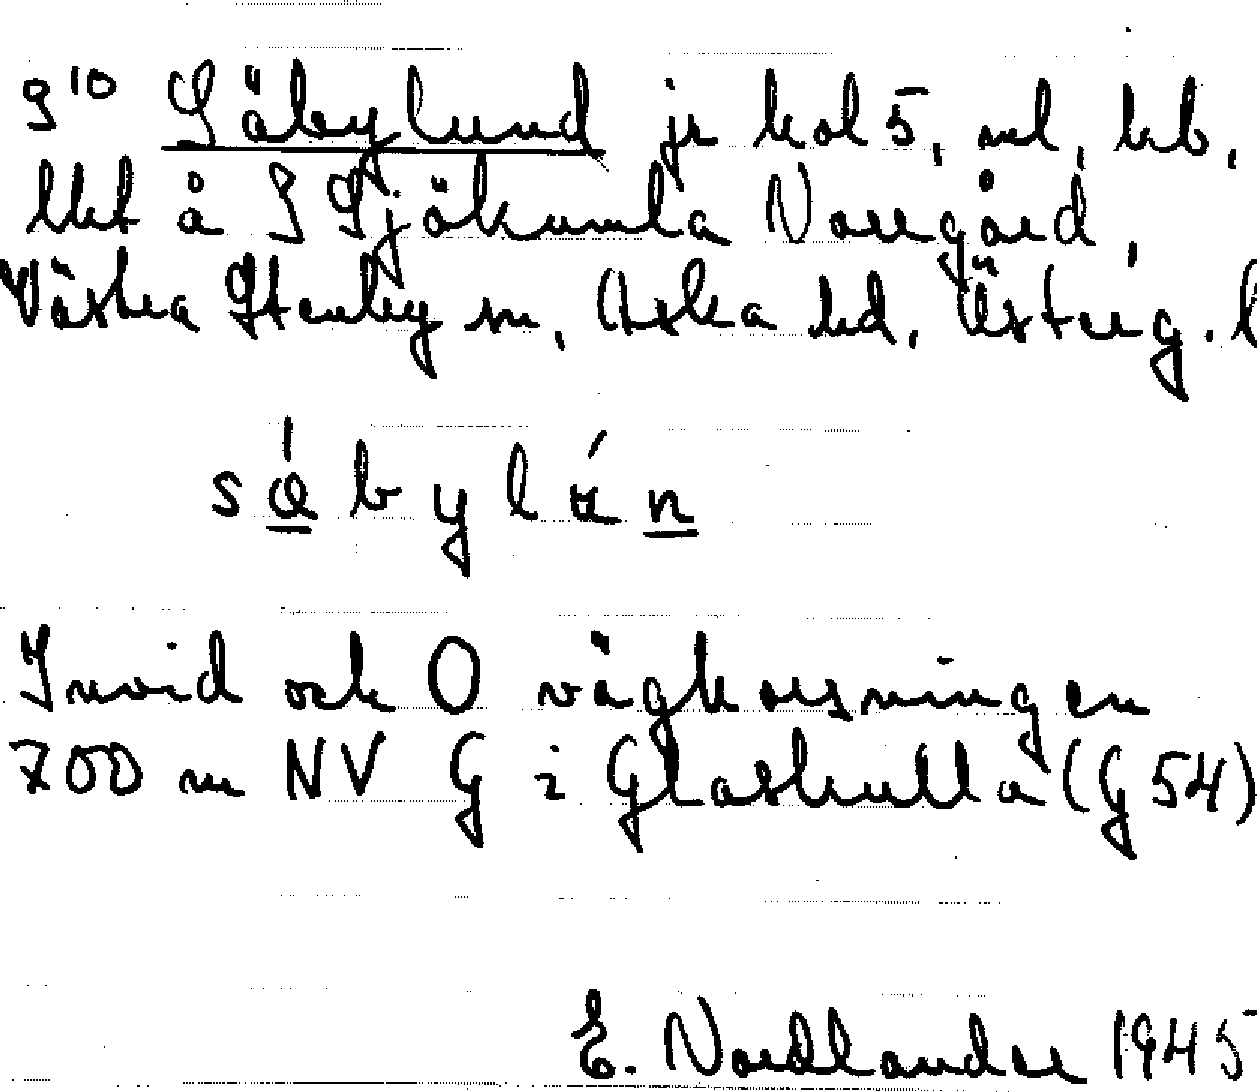 S¹⁰ Säbylund jr kol 5, ml, hb,
lht å S Sjökumla Norrgård,
Västra Stenby sn, Aska hd, Österg. l
sä́bylún
Invid och O vägkorsningen
700 m NV G i Glaskulla (G 54)
E. Nordlander 1945